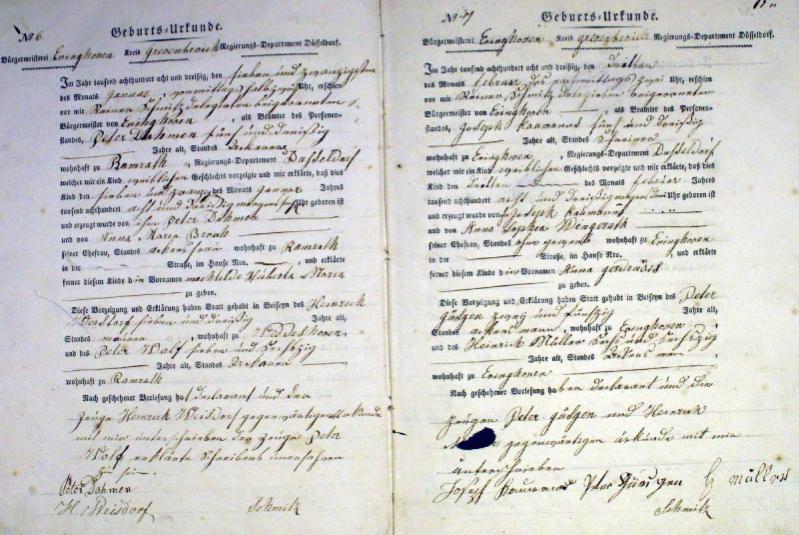 No 6.
Geburts-Urkunde.
Bürgermeisterei Evinghoven Kreis Grevenbroich Regierungs-Departement Düsseldorf.
Im Jahr tausend achthundert acht und dreißig, den sieben und zwanzigsten
des Monats Januar, vormittags Uhr, erschien
vor mir Reiner Schmitz delegirten beigeordneten
Bürgermeister von Evinghoven, als Beamter des Personen-
standes, Peter Dahmen fünf und dreißig
Jahre alt, Standes Ackerer
wohnhaft zu Ramrath, Regierungs-Departement Düsseldorf
welcher mir ein Kind weiblichen Geschlechts vorzeigte und mir erklärte, daß dies
Kind den sieben und des Monats Januar Jahrs
tausend achthundert acht und dreißig morgens Uhr geboren ist
und erzeugt wurde von ihm Peter Dahmen
und von Anna Maria
seiner Ehefrau, Standes ackersfrau wohnhaft zu Ramrath
in der Straße, im Hause Nro. und erklärte
ferner diesem Kinde den Vornamen Maria
zu geben.
Diese Vorzeigung und Erklärung haben Statt gehabt in Beiseyn des Heinrich
Weisdorf sieben und dreißig Jahre alt,
Standes, wohnhaft zu
und des Peter Wolf sieben und sechszig
Jahre alt, Standes
wohnhaft zu Ramrath
Nach geschehener Vorlesung hat declarant und der
Zeuge Heinrich Weisdorf gegenwärtige Urkunde
mit mir unterschrieben der zeuge Peter
Wolf erklärte Schreibens unerfahren
zu sein
Peter Dahmen
H. Weisdorf Schmitz
No 7
Geburts-Urkunde.
Bürgermeisterei Evinghoven Kreis Grevenbroich Regierungs-Departement Düsseldorf.
Im Jahr tausend achthundert acht und dreißig, den Dritten
des Monats februar, des vormittags zwei Uhr, erschien
vor mir Reiner Schmitz delegirten beigeordneter
Bürgermeister von Evinghoven, als Beamter des Personen-
standes, Joseph fünf und dreißig
Jahre alt, Standes Schreiner
wohnhaft zu Evinghoven, Regierungs-Departement Düsseldorf
welcher mir ein Kind weiblichen Geschlechts vorzeigte und mir erklärte, daß dies
Kind den Dritten des Monats februar Jahrs
tausend achthundert acht und dreißig morgens Uhr geboren ist
und erzeugt wurde von Joseph
und von Anna Sophia Wingerath
seiner Ehefrau, Standes ohne gewerb wohnhaft zu Evinghoven
in der Straße, im Hause Nro. und erklärte
ferner diesem Kinde den Vornamen Anna
zu geben.
Diese Vorzeigung und Erklärung haben Statt gehabt in Beiseyn des Peter
zwey und fünfzig Jahre alt,
Standes ackersmann, wohnhaft zu Evinghoven,
und des Heinrich Müller sechs und sechszig
Jahre alt, Standes
wohnhaft zu Evinghoven
Nach geschehener Vorlesung haben declarant und die
zeugen Peter und Heinrich
gegenwärtigen urkunde mit mir
unterschrieben
Josepf Peter H Müller
Schmitz